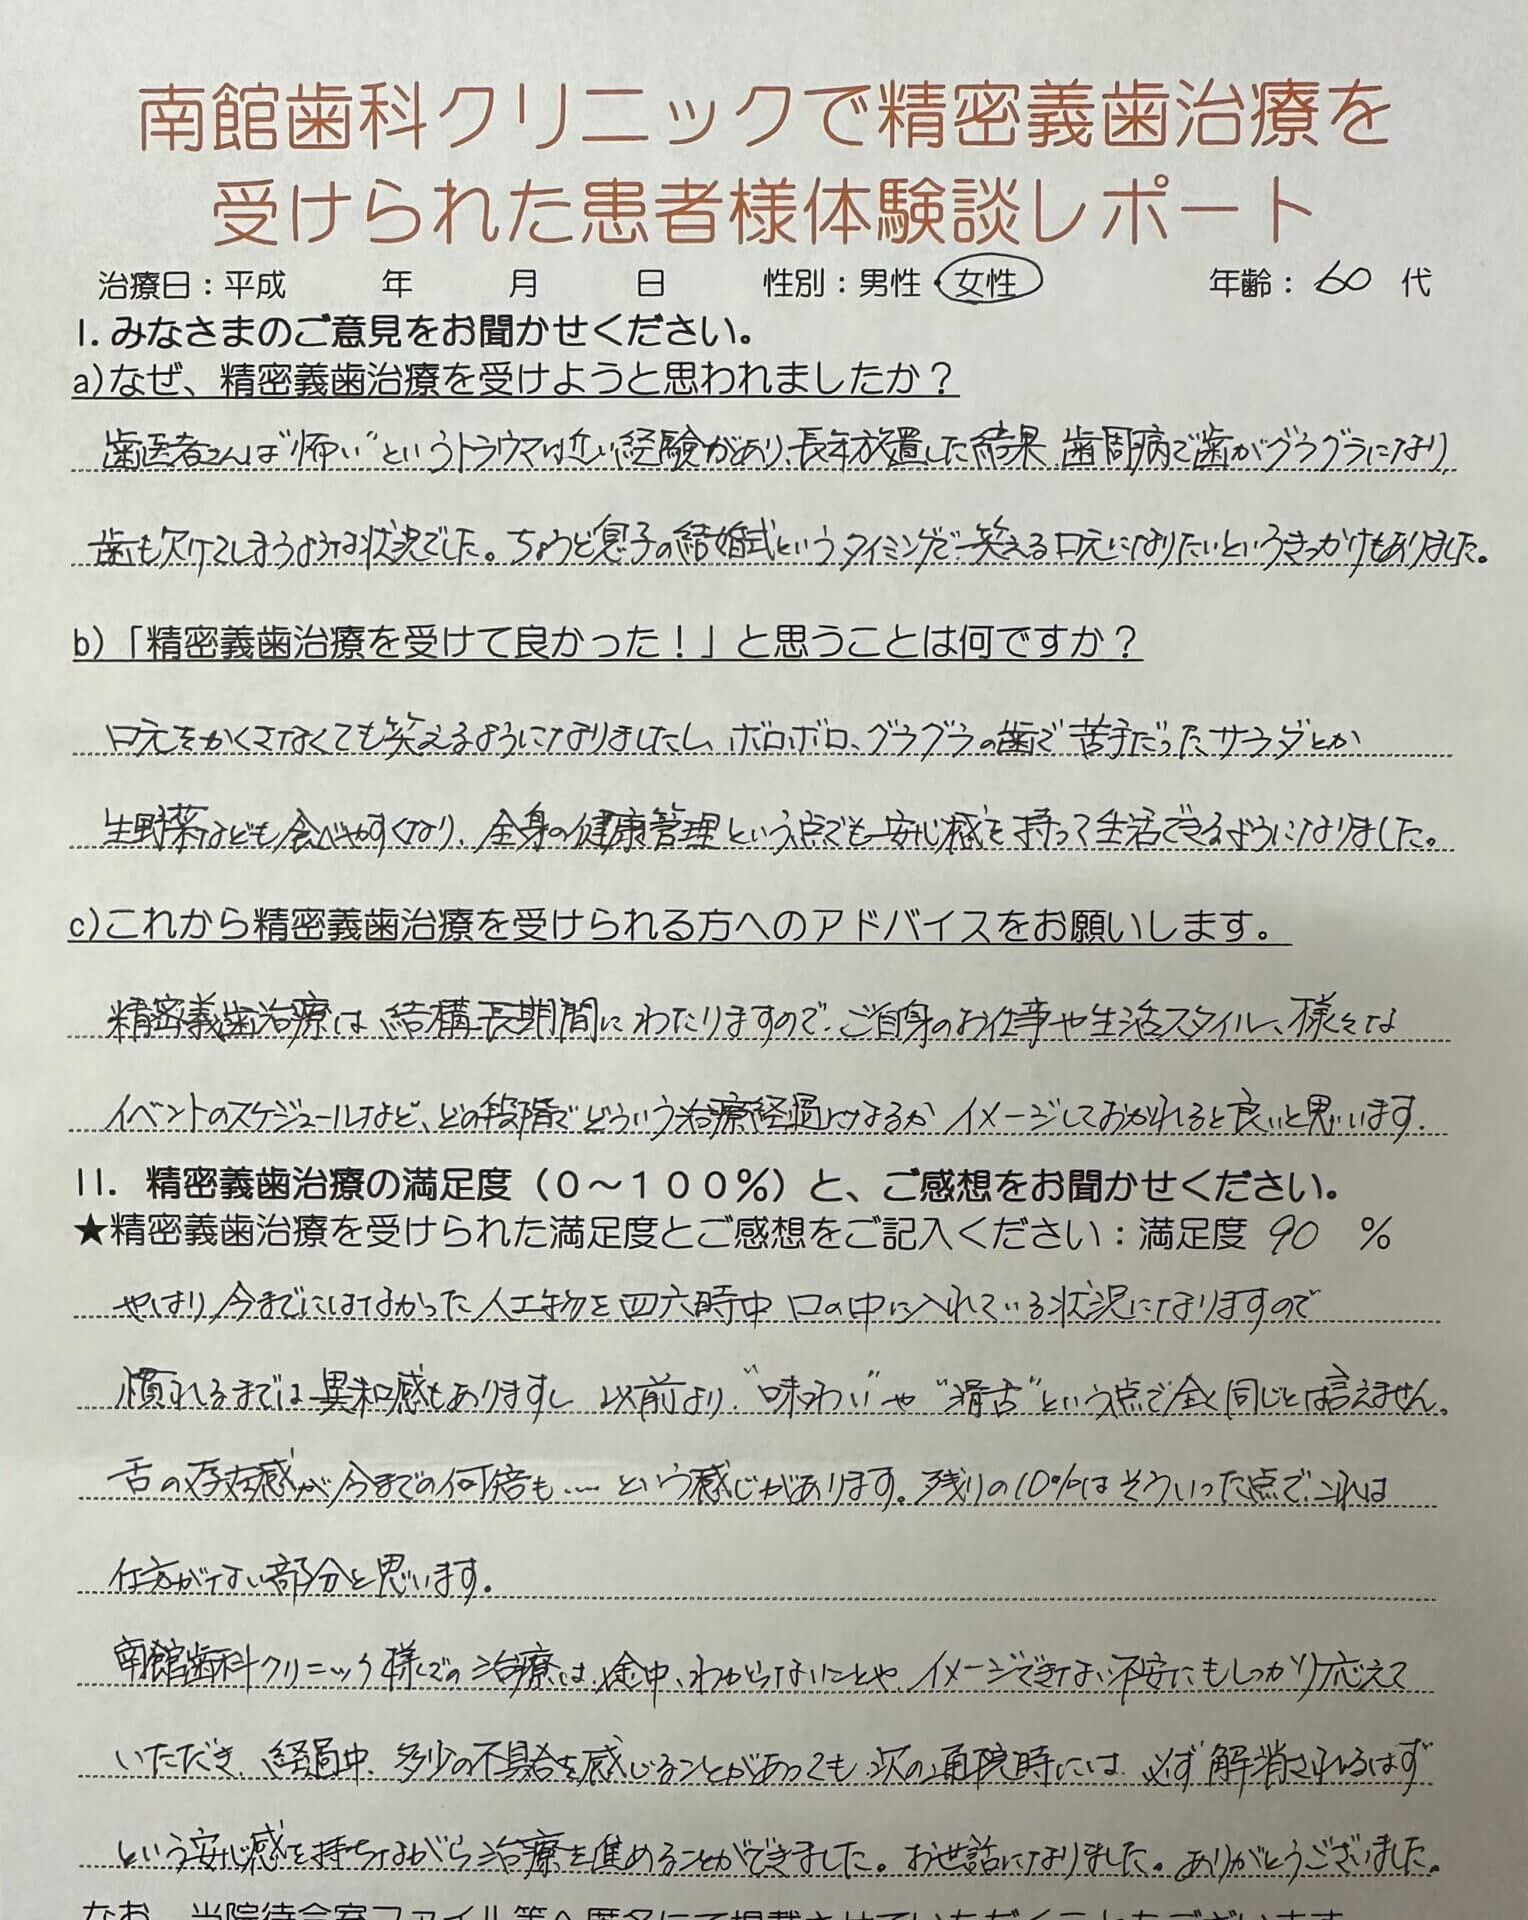 南館歯科クリニックで精密義歯治療を
受けられた患者様体験談レポート
治療日：平成　　年　　月　　日　　性別：男性・女性　　年齢：60代
I. みなさまのご意見をお聞かせください。
a)なぜ、精密義歯治療を受けようと思われましたか？
歯医者さんは"怖い"というトラウマに近い経験があり、長年放置した結果、歯周病で歯がグラグラになり、
歯も欠けてしまうような状況でした。ちょうど息子の結婚式というタイミングで、笑える口元になりたいというきっかけもありました。
b)「精密義歯治療を受けて良かった！」と思うことは何ですか？
口元をかくさなくても笑えるようになりましたし、ボロボロ、グラグラの歯で苦手だった、サラダとか
生野菜なども食べやすくなり、全身の健康管理という点でも安心感を持って生活できるようになりました。
c)これから精密義歯治療を受けられる方へのアドバイスをお願いします。
精密義歯治療は、結構長期間にわたりますので、ご自身のお仕事や生活スタイル、様々な
イベントのスケジュールなど、どの段階でどういう治療経過になるかイメージしておかれると良いと思います。
II. 精密義歯治療の満足度（０～１００％）と、ご感想をお聞かせください。
★精密義歯治療を受けられた満足度とご感想をご記入ください：満足度 90 ％
やはり今までにはなかった人工物を四六時中口の中に入れている状況になりますので
慣れるまでは異和感もありますし、以前より"味わい"や"滑舌"という点で全く同じとは言えません。
舌の存在感が今までの何倍も……という感じがあります。残りの10%はそういった点で、これは
仕方がない部分と思います。
南館歯科クリニック様での治療は、途中、わからないことや、イメージできない不安にもしっかり応えて
いただき、経過中、多少の不具合を感じることがあっても、次の通院時には、必ず解消されるはず
という安心感を持ちながら治療を進めることができました。お世話になりました。ありがとうございました。
なお、当院待合室ファイル等へ匿名にて掲載させていただくこともございます